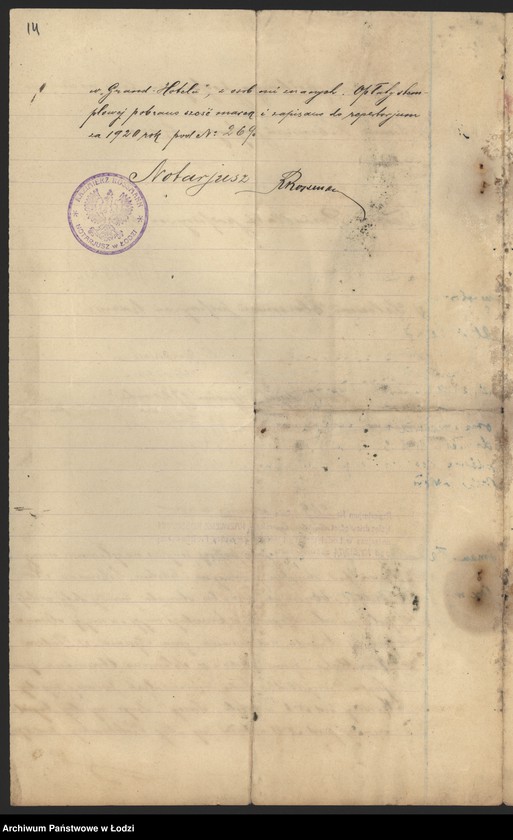 14
w „Grand-Hotelu", i osób mi znanych. Opłaty stem-
plowej pobrano sześć marek i zapisano do repertorjum
za 1920 rok pod № 269.
Notarjusz
NOTARJUSZ w ŁODZI
Archiwum Państwowe w Łodzi